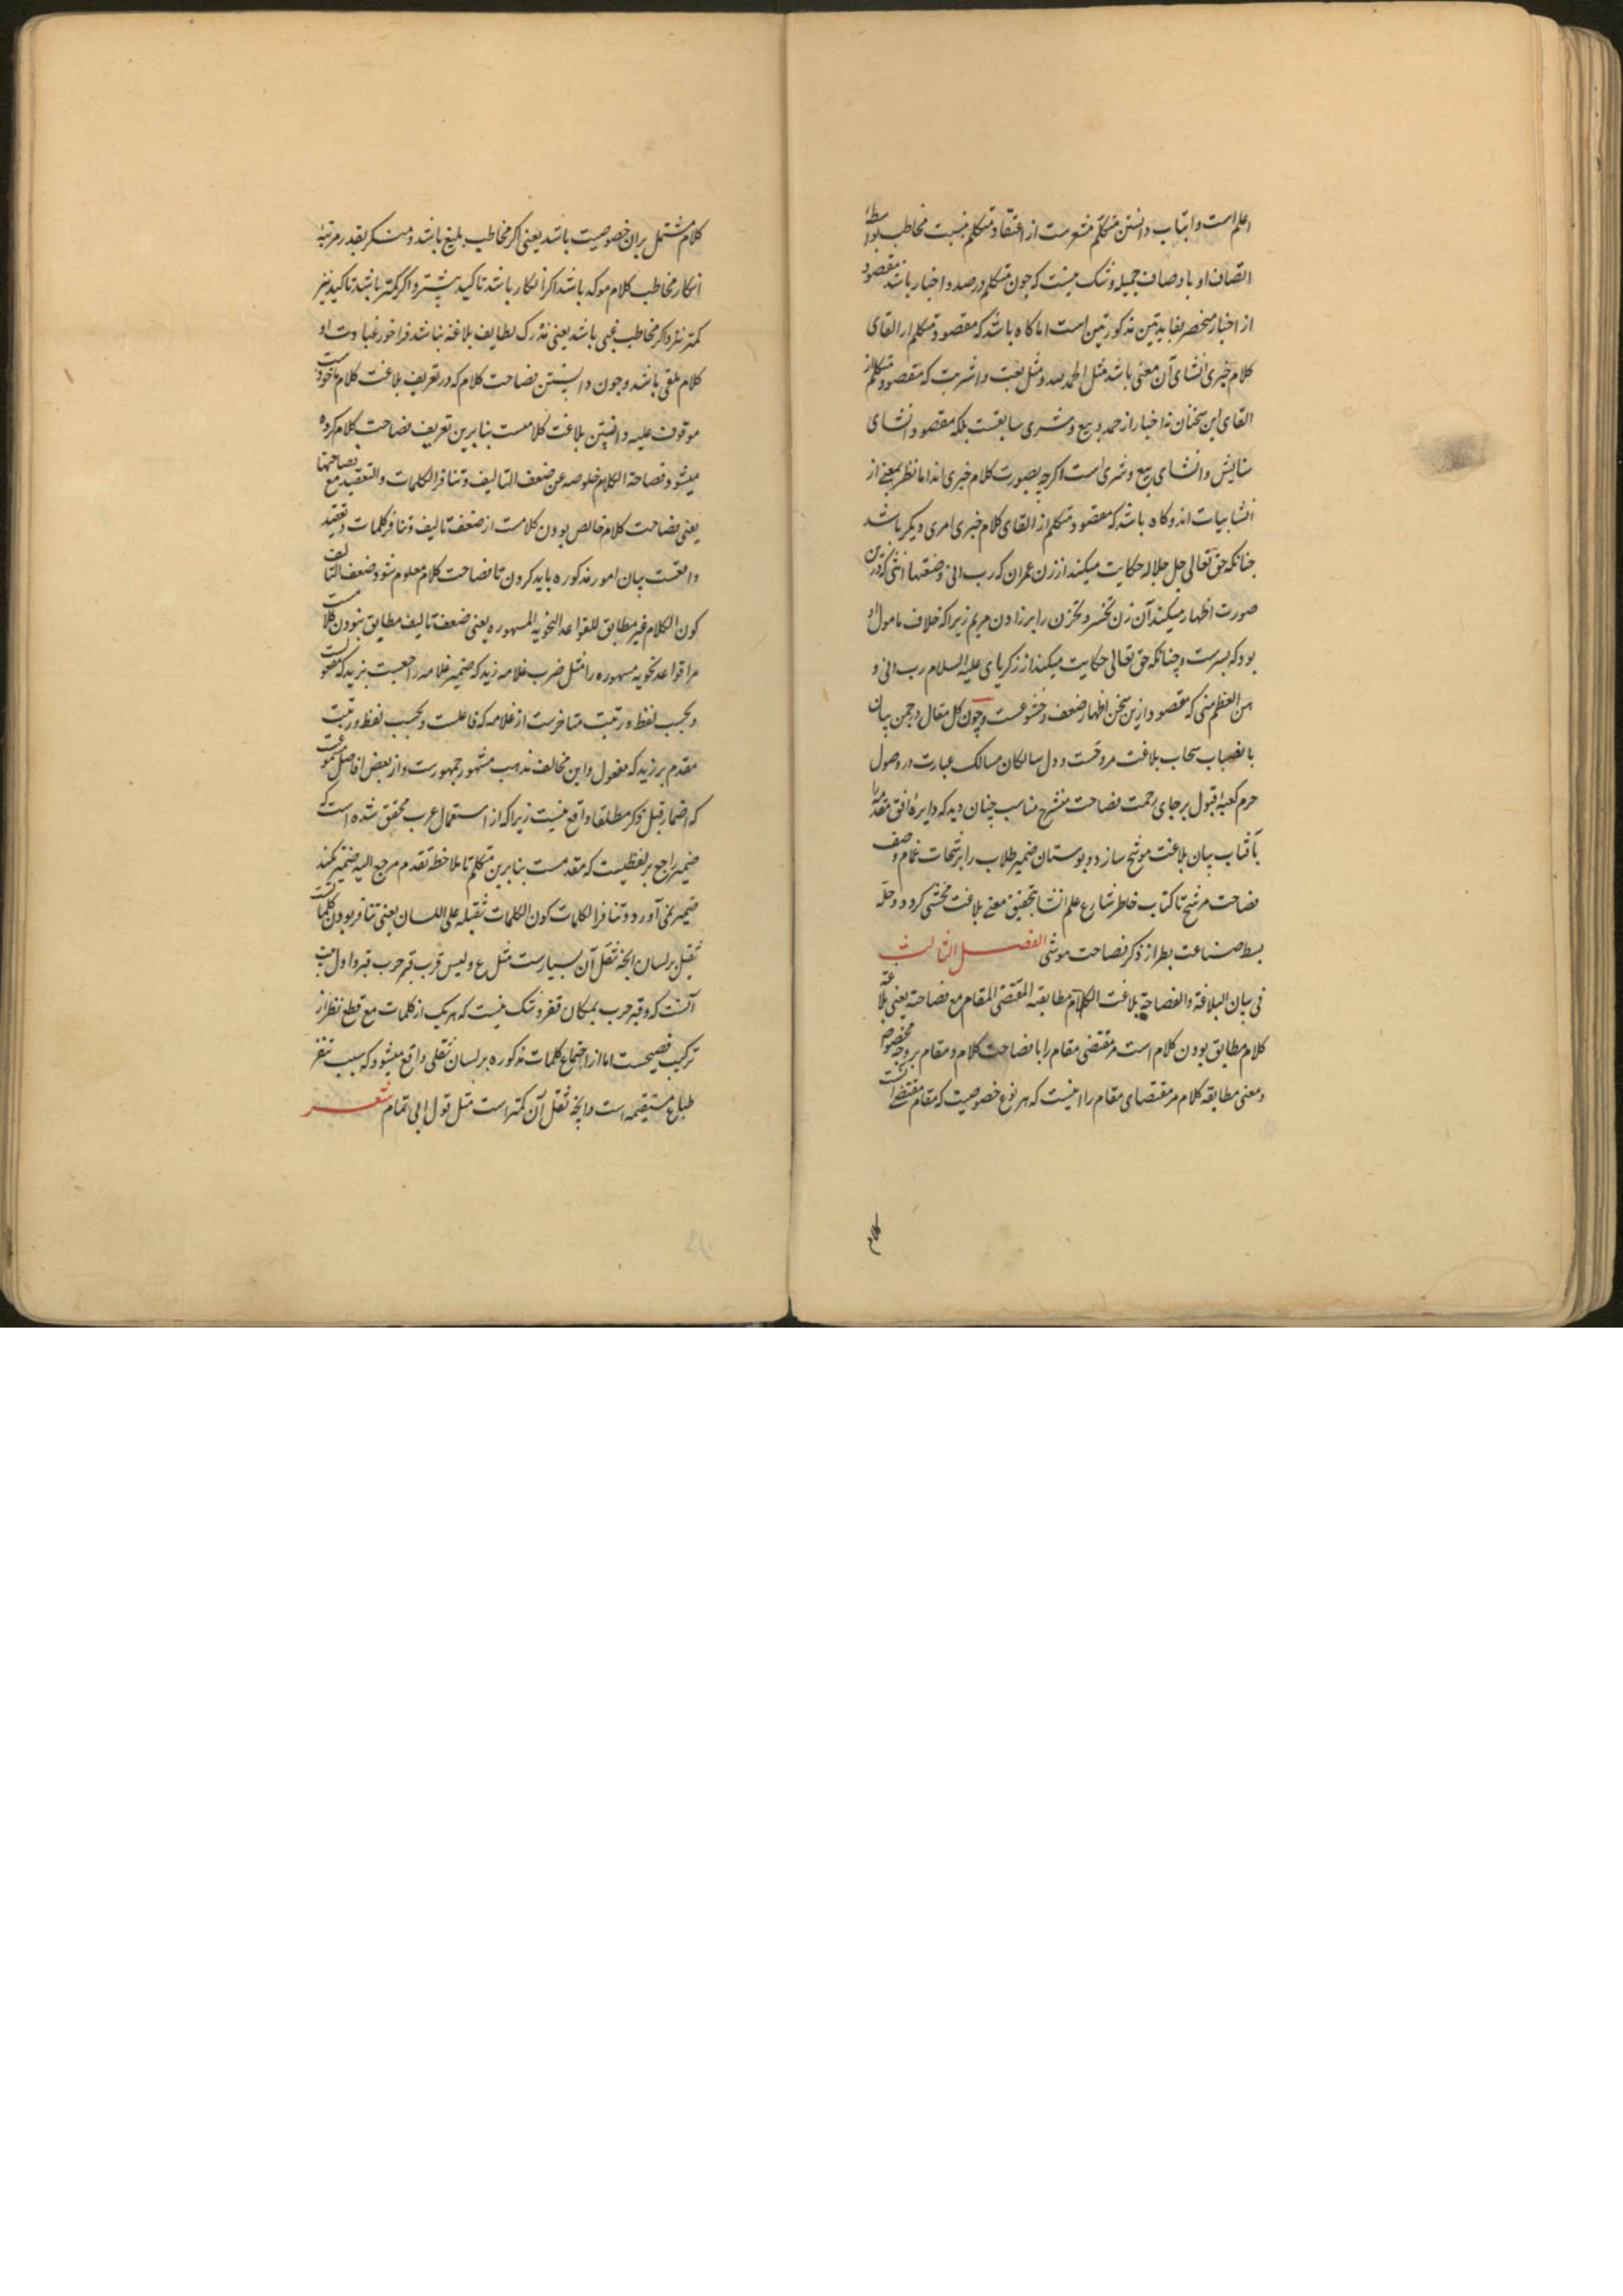 اعلم است و ابتاب دانستن متکلم مشعرست از اعتقاد متکلم بنسبت مخاطب بواسطهٔ
اتصاف او باوصاف جمیله و شک نیست که چون متکلم در صدد اخبار باشد مقصود
از اخبار منحصر بفایدتین مذکورتین است اما کاه باشد که مقصود متکلم از القای
کلام خبری انشای آن معنی باشد مثل الحمد لله و مثل بعت و اشتریت که مقصود متکلم از
القای این سخنان نه اخبار از حمد و بیع و شری سابقست بلکه مقصود انشای
ستایش و انشای بیع و شری است اکرچه بصورت کلام خبری اند اما نظر بمعنی از
انشاییات اند و کاه باشد که مقصود متکلم از القای کلام خبری امری دیکر باشد
جنانکه حق تعالی جل جلاله حکایت میکند از زن عمران که رب انی وضعتها انثی که درین
صورت اظهار میکند آن زن تحسر و تحزن را بر زادن مریم زیرا که خلاف مامول او
بود که پسرست و چنانکه حق تعالی حکایت میکند از زکریای علیه السلام رب انی و
هن العظم منی که مقصود ازین سخن اظهار ضعف و خشوعست و چون کل مقال در چمن بیان
بانصباب سحاب بلاغت مروحست و دل سالکان مسالک عبارت در وصول
حرم کعبهٔ قبول برجای رحمت فصاحت منشرح مناسب چنان دید که دایرهٔ افق مقدمه را
بآفتاب بیان بلاغت موشح سازد و بوستان ضمیر طلاب را برشحات غمام وصف
فصاحت مرشح تا کتاب خاطر شارع علم انشا بتحقیق معنی بلاغت محشی کردد و حلهٔ
بسط صناعت بطراز ذکر فصاحت موشی الفصل الثالث
فی بیان البلاغة و الفصاحة بلاغت الکلام مطابقته المقتضی المقام مع فصاحته یعنی بلاغة
کلام مطابق بودن کلام است مر مقتضی مقام را با فصاحت کلام و مقام بر وجه مخصوص
و معنی مطابقه کلام مر مقتضای مقام را اینست که هر نوع خصوصیت که مقام مقتضی آنست
کلام مشتمل بران خصوصیت باشد یعنی اکر مخاطب بلیغ باشد و منکر بقدر مرتبهٔ
انکار مخاطب کلام موکد باشد اکر انکار باشد تاکید بیشتر و اکر کمتر باشد تاکید نیز
کمتر نزد اکر مخاطب غبی باشد یعنی مدرک لطایف بلاغة نباشد فراخور غباوت او
کلام ملقی باشد و چون دانستن فصاحت کلام که در تعریف بلاغت کلام ماخوذست
موقوف علیه دانستن بلاغت کلامست بنابرین تعریف فصاحت کلام کرده
میشود فصاحة الکلام خلوصه عن ضعف التالیف و تنافر الکلمات و التعقید مع فصاحتها
یعنی فصاحت کلام خالص بودن کلامست از ضعف تالیف و تنافر کلمات و تعقید
بیان امور مذکوره باید کردن تا فصاحت کلام معلوم شود ضعف التالیف
کون الکلام غیر مطابق للقواعد النحویه المشهوره یعنی ضعف تالیف مطابق نبودن کلامست
مر قواعد نحویه مشهوره را مثل ضرب غلامه زید که ضمیر غلامه راجعست بزید که مفعولست
و بحسب لفظ و رتبت متاخرست از غلامه که فاعلست و بحسب لفظ و رتبت
مقدم بر زید که مفعول و این مخالف مذهب مشهور جمهورست و از بعض افاضل مسموعست
که اضمار قبل ذکر مطلقا واقع نیست زیرا که از استعمال عرب محقق شده است که
ضمیر راجع بر لفظیست که مقدمست بنابرین متکلم تا ملاحظه تقدم مرجع الیه ضمیر نکند
ضمیر نمی آورد و تنافر الکلمات کون الکلمات ثقیله علی اللسان یعنی تنافر بودن کلماتست
ثقیل بر لسان انچه ثقل آن بسیارست مثل ع ولیس قرب قبر حرب قبر و اول مصراع
آنست که و قبر حرب بمکان قفر و شک نیست که هر یک از کلمات مع قطع نظر از
ترکیب فصیحست اما از اجتماع کلمات مذکوره بر لسان ثقلی واقع میشود که سبب تنفر
طباع مستقیمه است و انچه ثقل آن کمتر است مثل قول ابی تمام شعر